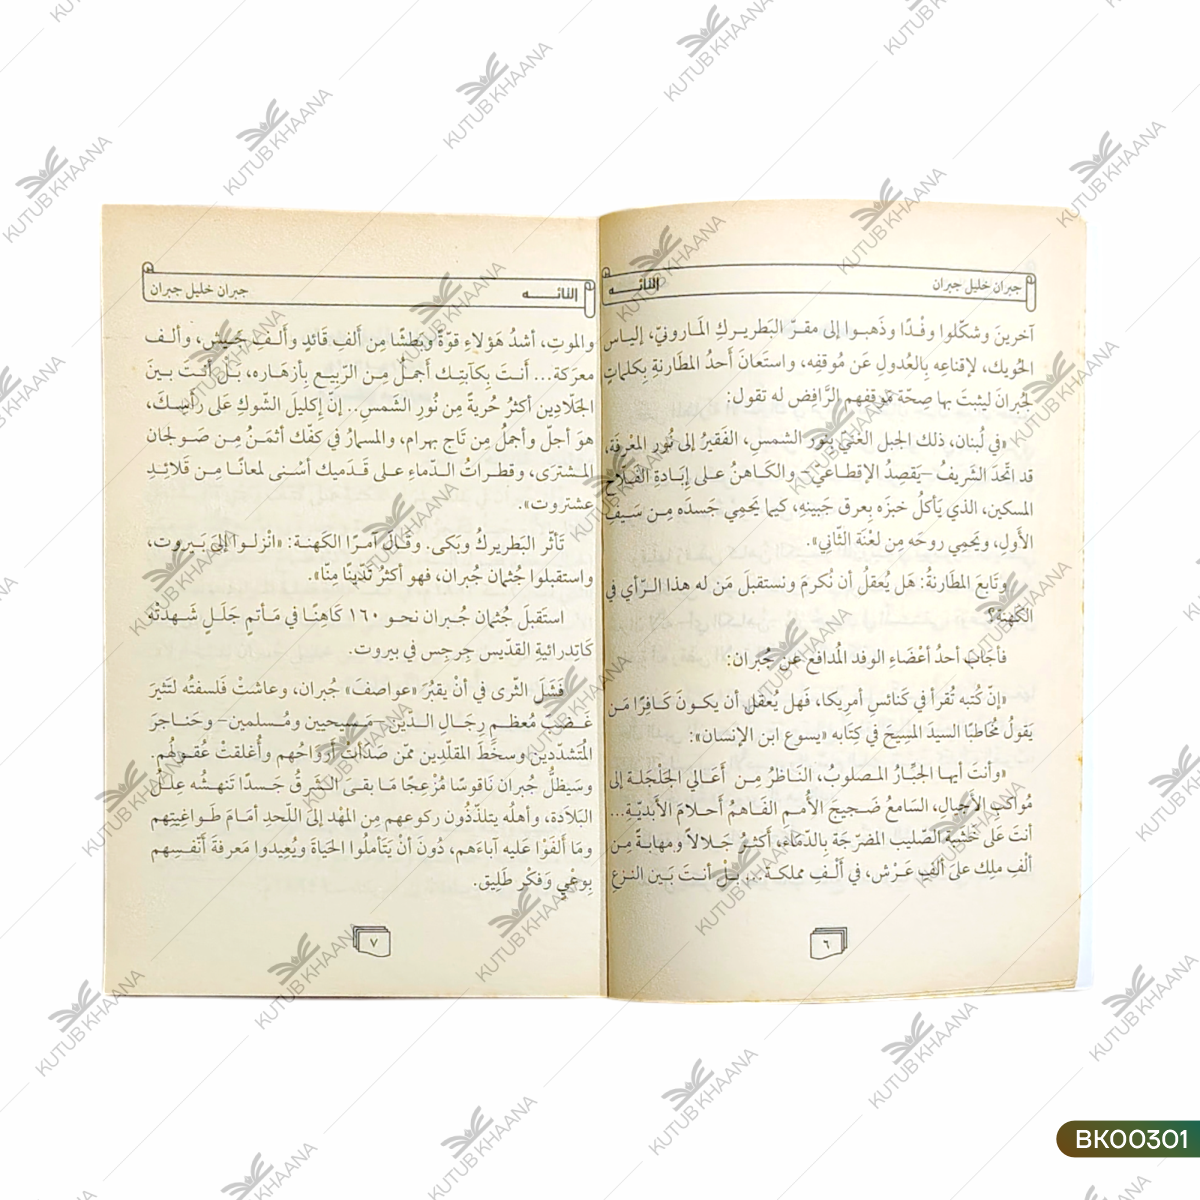 جبران خليل جبران
التائـــــه
آخرينَ وشكّلوا وفْدًا وذَهبـوا إلى مقرّ البَطريـرك المَارونيّ، إليـاس
الحُويك، لإقناعِه بالعُدولِ عَن مُوقفِه، واستَعانَ أحدُ المطَارنةِ بِكلماتٍ
لجُبرانَ ليثبتَ بها صِحّةَ مَوقفِهم الرَّافِض له تقول:
«في لُبنان، ذلك الجبل الغَنيّ بِنُور الشمس، الفَقيرُ إلى نُور المَعْرفَة،
قد اتحَّدَ الشَريفُ –يَقصِدُ الإقطاعي– والكَـاهنُ علـى إبَـادة الفَلّاح
المسكين، الذي يَأكلُ خبزَه بِعرق جَبينهِ، كيما يَحمِي جَسدَه مِـن سَـيفِ
الأَولِ، ويَحمِي روحَه مِن لعْنَة الثّاني».
وتابعَ المطَارنةُ: هَل يُعقلُ أن نُكرمَ ونستقبلَ مَن له هذا الـرَّأي في
الكَهنة؟
فأجابَ أحدُ أعْضَاءِ الوفد المُدافع عَن جُبران:
«إنّ كُتبه تُقرأ في كَنائسِ أمرِيكا، فَهل يُعقلُ أن يكـونَ كَـافِرًا مَـن
يقولُ مُخَاطبًا السيدَ المَسِيحَ في كِتابه «يسوع ابن الإنسان»:
«وأنتَ أيهـا الجَبَّـارُ المـصلوبُ، النـاظرُ مِـن أعَـالي الجَلْجَلـة إلى
مُواكبِ الأجيال، السَامعُ ضَـجيجَ الأُمـم الفَـاهمُ أحـلامَ الأَبديّـةِ...
أنتَ عَلَى خَشَبةِ الصّليب المضرّجَة بِالدّمَاء، أكثـرُ جَـلالاً ومهابـةً مِـن
ألْفِ ملِك علىَ ألفِ عَـرْش، في ألْـفِ مملكـة... بـلْ أنـتَ بَـين النـزعِ
٦
التائـــــه
جبران خليل جبران
والموتِ، أشدُ هَؤلاءِ قوّةً وبَطشًا مِن ألف قائدٍ وألـفِ جَـيشٍ، وألـف
معرَكة... أنـتَ بِكآبتِـك أجمـلُ مِـن الرّبيـع بأزهَـاره، بَـل أنـتَ بـينَ
الجَلّادِين أكثرُ حُريةً مِن نُورِ الشَمسِ.. إنّ إكليلَ الشّوكِ عَلَى رأسِـكَ،
هوَ أجلّ وأجملُ مِن تَاج بهرام، والمسمارُ في كفّك أثمَـنُ مِـن صَـولجان
المشترى، وقَطـراتُ الـدّماءِ علـى قَـدَميك أسْنى لمعانًـا مِـن قَلائِـدِ
عشتروت».
تَأثّر البَطريركُ وبَكى. وقَـالَ آمـرًا الكَهنـة: «انْزلـوا إلىَ بَـيروت،
واستقبلوا جُثمان جُبران، فهو أكثرُ تَدَينًا مِنّا».
استَقبلَ جُثمان جُـبران نحـو ١٦٠ كَاهِنًـا في مـأتمٍ جَلَـلٍ شَـهدتْهُ
كَاتِدرائيةِ القدّيس جِرجِس في بيروت.
فَشَلَ الثّرى في أنْ يقبُرَ «عواصفَ» جُبران، وعاشتْ فَلسفتُه لتَثيرَ
غَـضبَ مُعظـمِ رِجَـالِ الـدّين –مَـسيحيين ومُـسلمين– وحَنـاجرَ
المُتشدّدين وسخَطَ المقلّدِين ممّن صَدَأتْ أرْوَاحُهم وأُغلقتْ عُقـولُهم.
وسَيظلُّ جُبران نَاقوسًا مُزْعِجًا مَا بقـىَ الـشَرقُ جَـسدًا تَنهـشُه عِلـلُ
البَلاَدة، وأهلُه يتلذّذُون ركوعهم مِن المهْد إلىَ اللّحد أمَامَ طَـواغِيتِهم
ومَا ألفَوْا عَليه آباءَهم، دُونَ أنْ يَتَأملُوا الحَيَاةَ ويُعِيدوا مَعرفةَ أنْفسِهم
بِوعْيٍ وَفكْرٍ طَلِيق.
٧
BK00301
KUTUB KHAANA